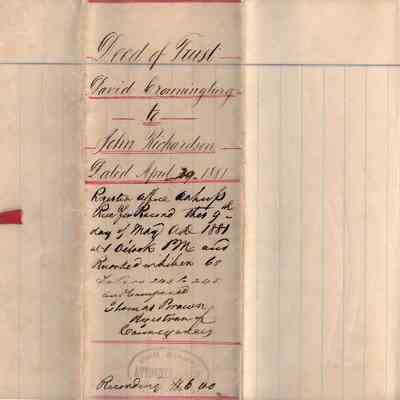 Deed of Trust
David Crauningburg
to
John Richardson
Dated April 29. 1881
Register office
Rec'd for Record this 9th
day of May A.D. 1881
at 1 O'clock P.M. and
Recorded in Liber 68
245
and Compared
Thomas Brown
Register of
Conveyances
Recording $6.00